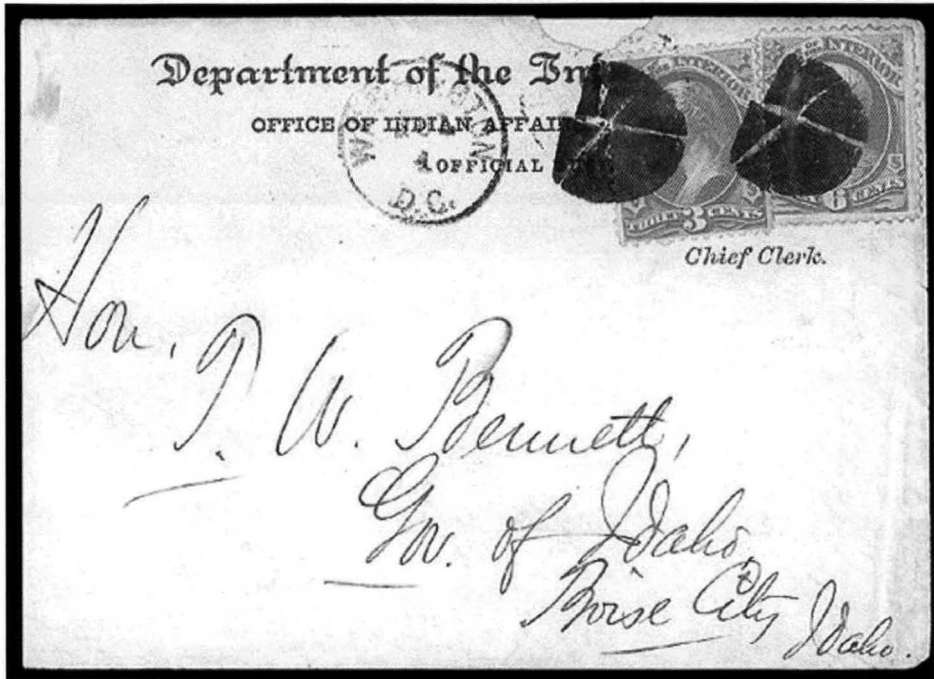 Department of the
OFFICE OF INDIAN AFFAI
OFFICIAL
WASHINGTON
D.C.
INTERIOR
THREE 3 CENTS
INTERIOR
6 CENTS
Chief Clerk.
Hon.
T. W. Bennett,
Gov. of Idaho,
Boise City Idaho.